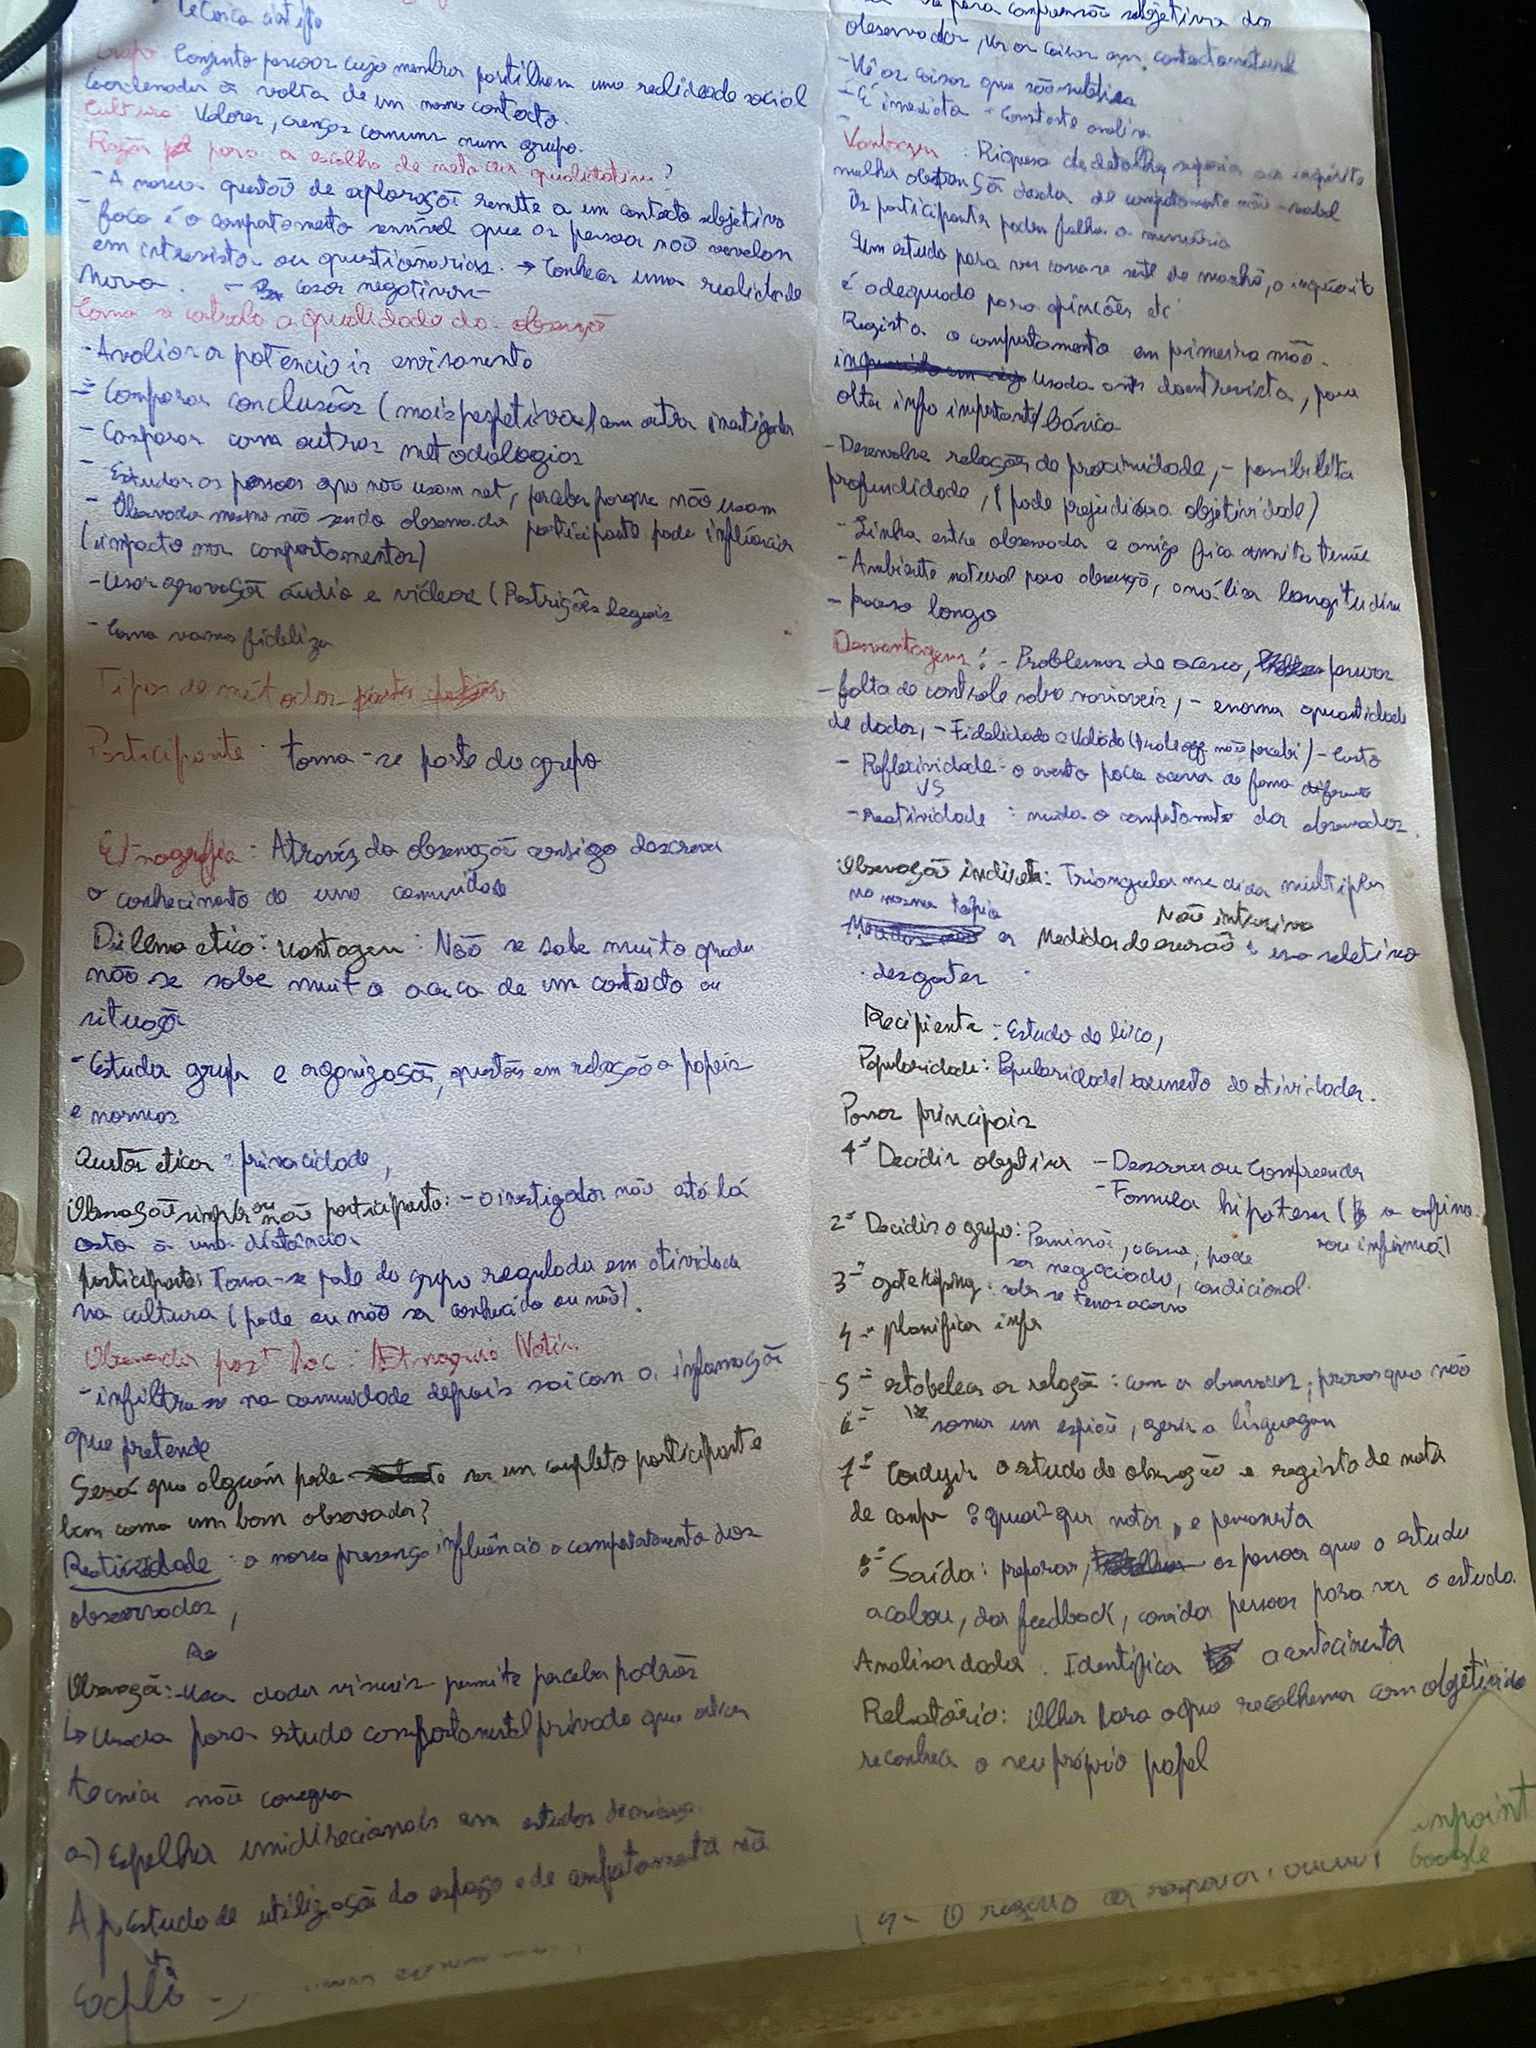 Grupo Conjunto pessoas cujo membros partilham uma realidade social
à volta de um mesmo contexto.
Cultura Valores, crenças comuns num grupo.
para a escolha de qualitativa?
- A nossa questão de exploração remete a um contexto subjetivo
- foco é o comportamento sensível que as pessoas não revelam
em entrevistas ou questionários. → Conhecer uma realidade
nova. - casos negativos -
Como se controla a qualidade da observação
- Avaliar o potencial enviesamento
- Comparar conclusões (mais perspetivas) com outro investigador
- Comparar com outras metodologias
- Estudar as pessoas que não usam net, perceber porque não usam
- Observador mesmo não sendo observador participante pode influenciar
(impacto nos comportamentos)
- Usar gravação áudio e vídeos (Restrições legais
- Como vamos fideliza
Tipos de métodos
Participante: torna-se parte do grupo
Etnografia: Através da observação consigo descrever
o conhecimento de uma comunidade
Dilema etico: vantagem: Não se sabe muito quando
não se sabe muito acerca de um contexto ou
situação
- Estudar grupos e organizações, questões em relação a papeis
e normas
Questões eticas: privacidade,
Observação simples ou não participante: - o investigador não está lá
está a uma distância
participante: Torna-se parte do grupo regulada em atividade
na cultura (pode ou não ser conhecido ou não).
- infiltra-se na comunidade depois sai com a informação
que pretende
Será que alguém pode ser um completo participante
bem como um bom observador?
Reatividade: a nossa presença influência o comportamento dos
observados,
Observação: - Usa dados visuais - permite perceber padrões
↳ Usada para estudo comportamental privado que outras
tecnica não consegue
a) Espelhos unidirecionais em estudos de
Ap Estudo de utilização do espaço e de comportamento não
para compreensão subjetiva do
observador, ver as coisas em contacto natural
- Vê as coisas que são
- É imediata - Constante analise
Vantagens: Riqueza de detalhe superior ao inquérito
melhor obtenção dados de comportamento não-verbal
Os participantes podem falhar a memória
Num estudo para ver como se sente de manhã, o inquérito
é adequado para opiniões etc
Regista o comportamento em primeira mão.
Usada antes da entrevista, para
obter info importante/básica
- Desenvolve relações de proximidade, - possibilita
profundidade, (pode prejudicar a objetividade)
- Linha entre observador e amigo fica muito ténue
- Ambiente natural para observação, análise longitudin
- processo longo
Desvantagens: - Problemas de acesso,
- falta de controle sobre variaveis, - enorme quantidade
de dados, - Fidelidade e Validade - Custo
- Reflexividade - o evento pode ocorrer de forma diferente
vs
- reatividade: muda o comportamento dos observados.
Observação indireta: Triangular medidas multiplas
no mesmo tópico
Não intrusiva
as Medidas de erosão: uso seletivo
desgaste
Recipiente: Estudo do lixo,
Popularidade: Popularidade/aumento de atividades.
Passos principais
1º Decidir objetivos - Descrever ou Compreender
- Formula hipoteses
2º Decidir o grupo: Permissão, acesso, pode
ser negociado, condicional.
3º gatekeeping: saber se temos acesso
4º planificar info
5º estabelecer a relação: com os observados, provar que não
6º somos um espião, gerir a linguagem
7º Conduzir o estudo de observação e registo de nota
de campo: quaisquer notas, e pensamento
8º Saída: preparar, as pessoas que o estudo
acabou, dar feedback, convidar pessoas para ver o estudo.
Analisar dados: Identifica acontecimento
Relatório: Olhar para o que recolhemos com objetivida
reconhecer o seu próprio papel
inpoint
Google